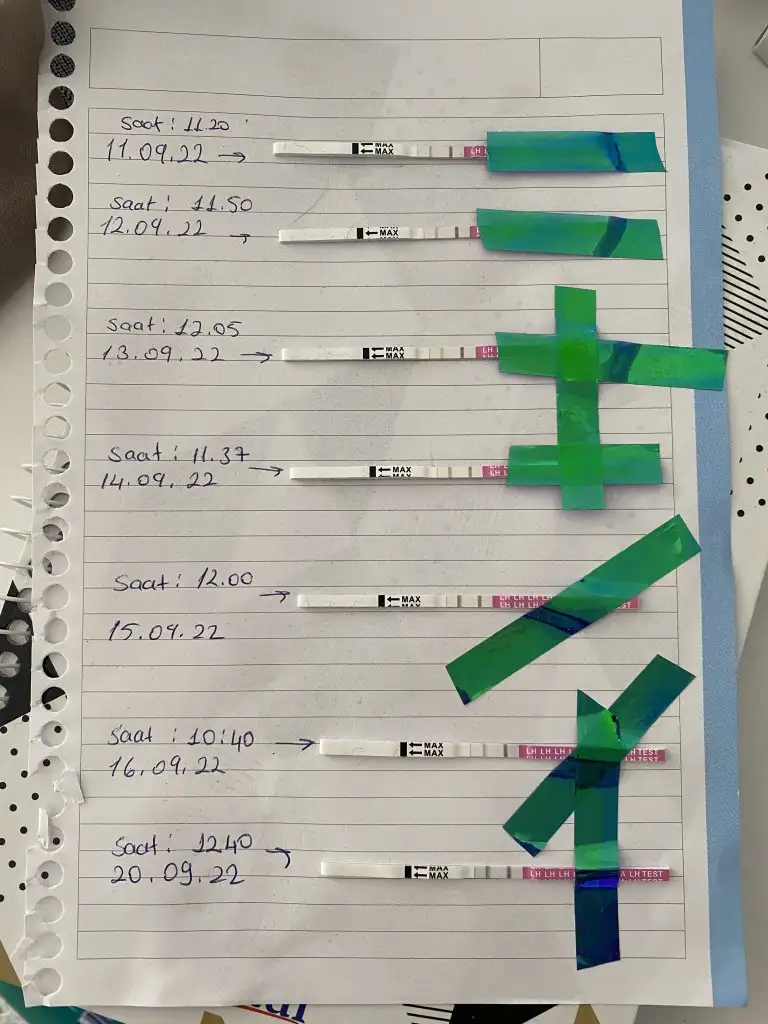 Saat: 11.20
11.09.22 →
MAX
← MAX
LH L
Saat: 11.50
12.09.22 →
← MAX
Saat: 12.05
13.09.22 →
MAX
← MAX
LH
Saat: 11.37
14.09.22 →
← MAX
MAX
LH
Saat: 12.00
→
15.09.22
← MAX
MAX
LH LH LH L
LH LH LH TEST
Saat: 10:40 →
16.09.22
← MAX
← MAX
LH LH LH LH LH TEST
LH LH LH LH LH TEST
Saat: 12.40 →
20.09.22
MAX
← MAX
LH LH LH A LH TEST